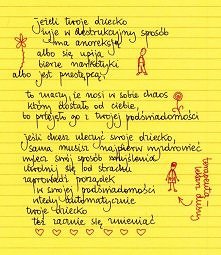 jeżeli twoje dziecko
żyje w destrukcyjny sposób
ma anoreksję
albo się upija
bierze narkotyki
albo jest psychopatą,
to znaczy, że nosi w sobie chaos
który dostało od ciebie,
bo przejęło go z twojej podświadomości
jeśli chcesz uleczyć swoje dziecko,
sama musisz najpierw wyzdrowieć
wylecz swój sposób myślenia
uwolnij się od strachu
zaprowadź porządek
w swojej podświadomości
wtedy automatycznie
twoje dziecko
też zacznie się zmieniać
terapeuta -
lekarz duszy